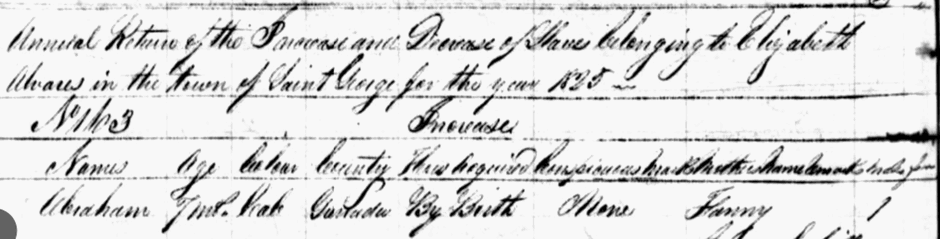 Annual Return of the Increase and Decrease of Slaves belonging to Elizabeth
Alvares in the town of Saint George for the year 1825
No 163 Increase
Names Age Colour Country How Acquired Conspicuous Marks Mothers Name Remarks
Abraham 7 mts. Grenada By Birth None Fanny 1